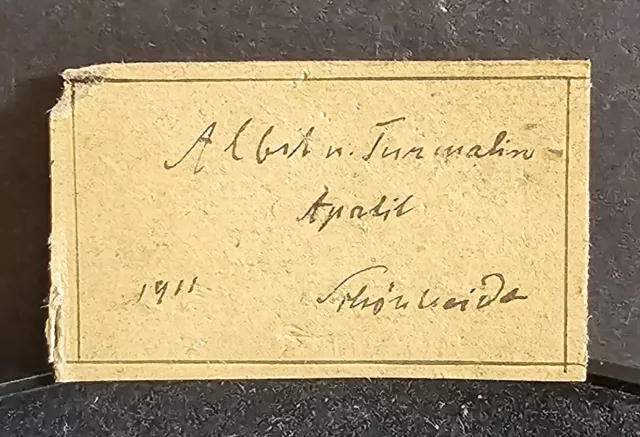 Albit u. Turmalin
Apatit
1911 Schönheide